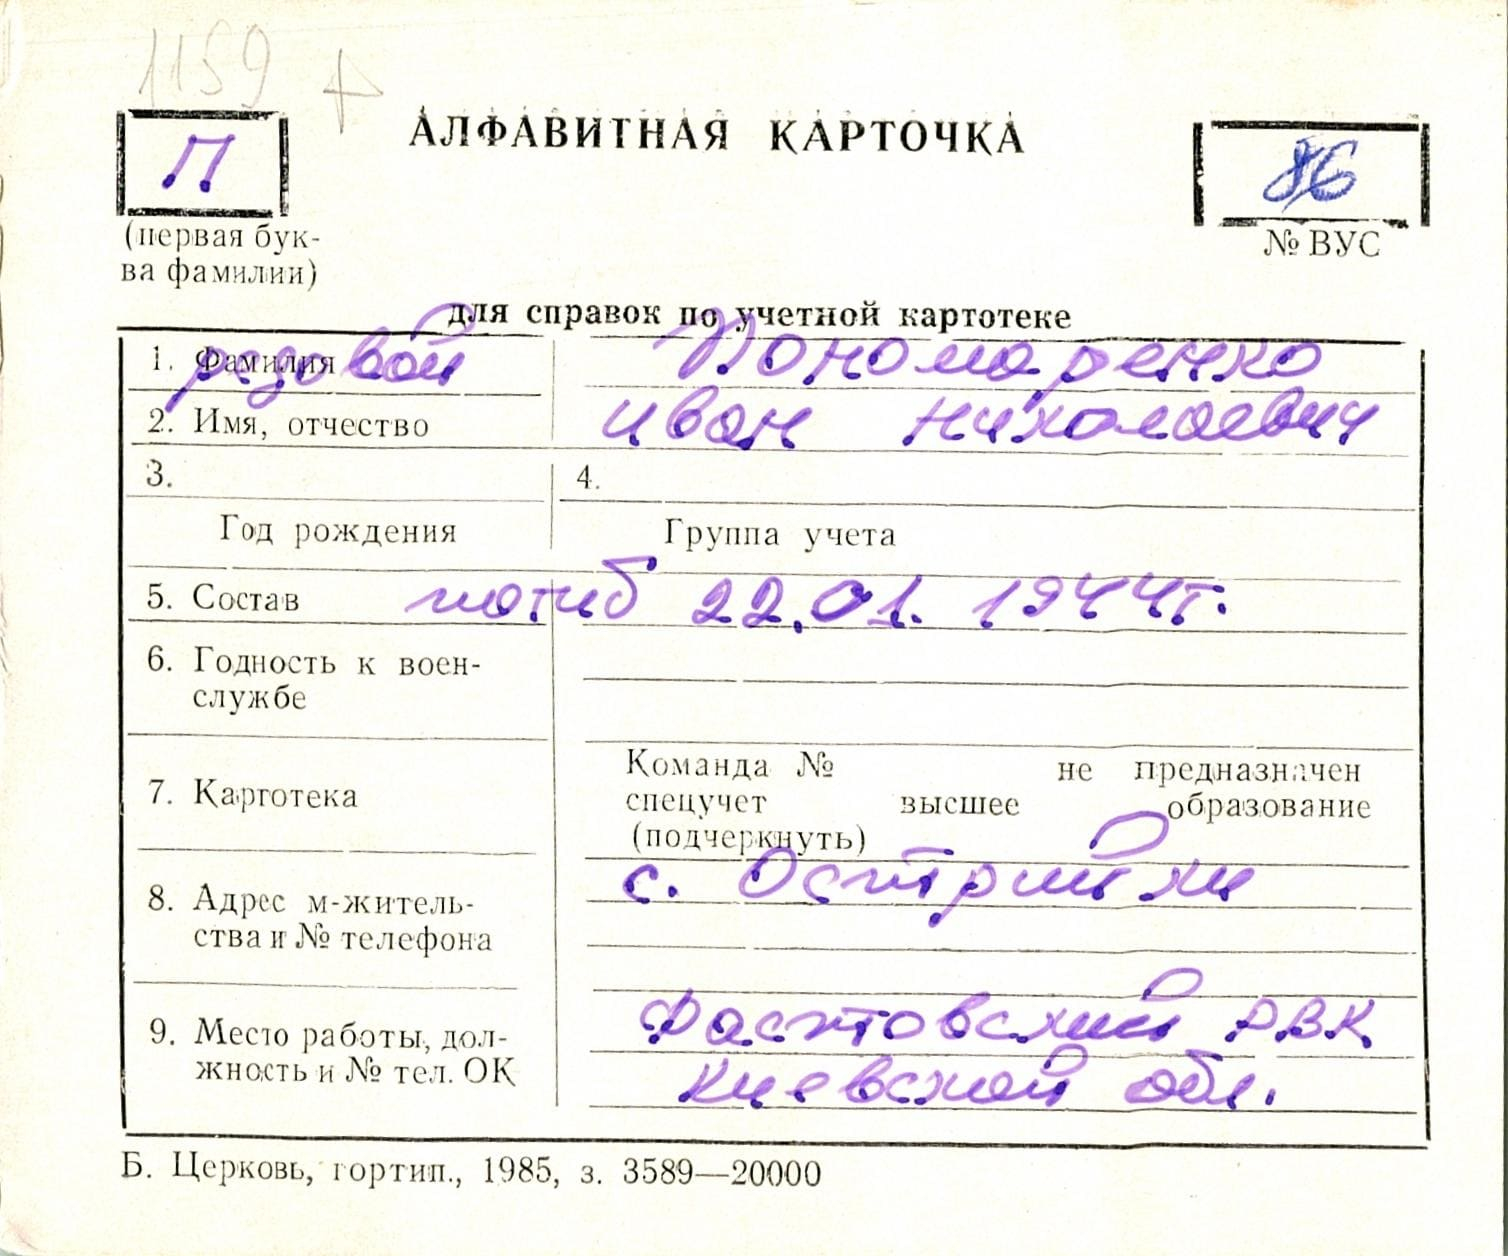 1159
АЛФАВИТНАЯ КАРТОЧКА
П
86
(первая бук-
ва фамилии)
№ ВУС
для справок по учетной картотеке
1. Фамилия рядовой Пономаренко
2. Имя, отчество Иван Николаевич
3. 4.
Год рождения Группа учета
5. Состав погиб 22.01.1944г.
6. Годность к воен-
службе
Команда № не предназначен
7. Картотека спецучет высшее образование
(подчеркнуть)
с. Острийки
8. Адрес м-житель-
ства и № телефона
Фастовский РВК
9. Место работы, дол-
жность и № тел. ОК Киевской обл.
Б. Церковь, гортип., 1985, з. 3589—20000